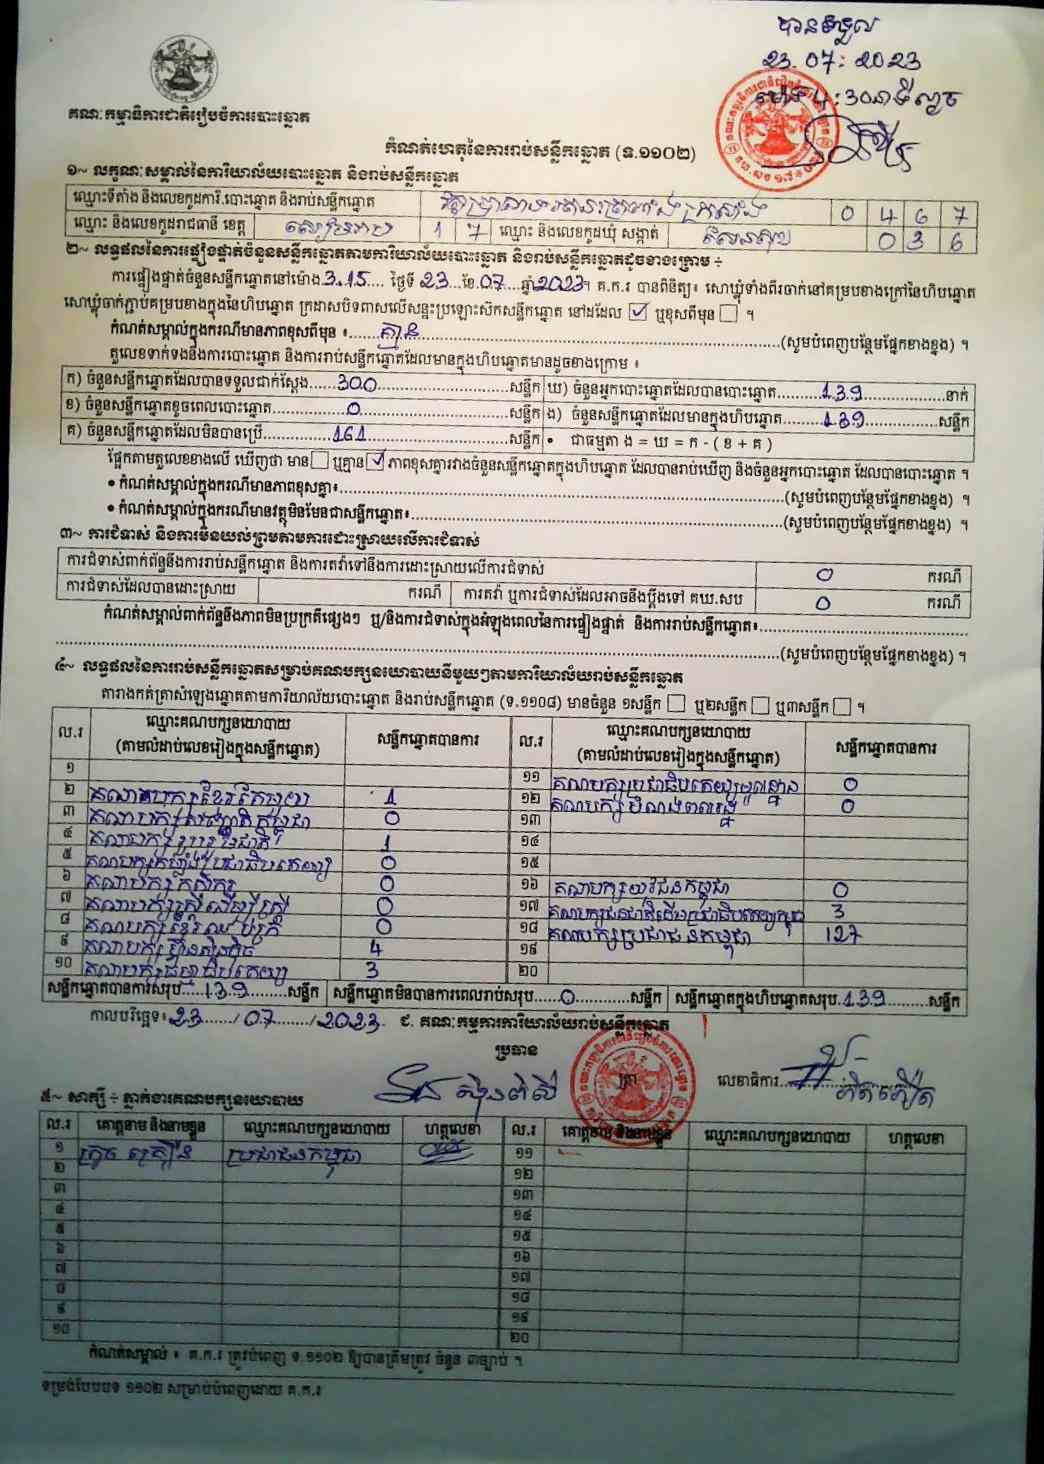 បានទទួល
23.07.2023
គណៈកម្មាធិការជាតិរៀបចំការបោះឆ្នោត
កំណត់ហេតុនៃការរាប់សន្លឹកឆ្នោត (ទ.១១០២)
១~ លក្ខណៈសម្គាល់នៃការិយាល័យបោះឆ្នោត និងរាប់សន្លឹកឆ្នោត
ឈ្មោះទីតាំង និងលេខកូដការិ.បោះឆ្នោត និងរាប់សន្លឹកឆ្នោត 0 4 6 7
ឈ្មោះ និងលេខកូដរាជធានី ខេត្ត សៀមរាប 1 7 ឈ្មោះ និងលេខកូដឃុំ សង្កាត់ 0 3 6
២~ លទ្ធផលនៃការផ្ទៀងផ្ទាត់ចំនួនសន្លឹកឆ្នោតតាមការិយាល័យបោះឆ្នោត និងរាប់សន្លឹកឆ្នោតដូចខាងក្រោម ÷
ការផ្ទៀងផ្ទាត់ចំនួនសន្លឹកឆ្នោតនៅម៉ោង 3.15 ថ្ងៃទី 23 ខែ 07 ឆ្នាំ 2023។ គ.ក.រ បានពិនិត្យ៖ សោឃ្លុំទាំងពីរចាក់នៅគម្របខាងក្រៅនៃហិបឆ្នោត
សោឃ្លុំចាក់ភ្ជាប់គម្របខាងក្នុងនៃហិបឆ្នោត ក្រដាសបិទពាសលើសន្ទះប្រឡោះស៊កសន្លឹកឆ្នោត នៅដដែល ☑ ឬខុសពីមុន ☐ ។
កំណត់សម្គាល់ក្នុងករណីមានភាពខុសពីមុន ៖ គ្មាន (សូមបំពេញបន្ថែមផ្នែកខាងខ្នង) ។
តួលេខទាក់ទងនឹងការបោះឆ្នោត និងការរាប់សន្លឹកឆ្នោតដែលមានក្នុងហិបឆ្នោតមានដូចខាងក្រោម ៖
ក) ចំនួនសន្លឹកឆ្នោតដែលបានទទួលជាក់ស្តែង 300 សន្លឹក ឃ) ចំនួនអ្នកបោះឆ្នោតដែលបានបោះឆ្នោត 139 នាក់
ខ) ចំនួនសន្លឹកឆ្នោតខូចពេលបោះឆ្នោត 0 សន្លឹក ង) ចំនួនសន្លឹកឆ្នោតដែលមានក្នុងហិបឆ្នោត 139 សន្លឹក
គ) ចំនួនសន្លឹកឆ្នោតដែលមិនបានប្រើ 161 សន្លឹក • ជាធម្មតា ង = ឃ = ក - ( ខ + គ )
ផ្អែកតាមតួលេខខាងលើ ឃើញថា មាន ☐ ឬគ្មាន ☑ ភាពខុសគ្នារវាងចំនួនសន្លឹកឆ្នោតក្នុងហិបឆ្នោត ដែលបានរាប់ឃើញ និងចំនួនអ្នកបោះឆ្នោត ដែលបានបោះឆ្នោត ។
• កំណត់សម្គាល់ក្នុងករណីមានភាពខុសគ្នា៖ (សូមបំពេញបន្ថែមផ្នែកខាងខ្នង) ។
• កំណត់សម្គាល់ក្នុងករណីមានវត្ថុមិនមែនជាសន្លឹកឆ្នោត៖ (សូមបំពេញបន្ថែមផ្នែកខាងខ្នង) ។
៣~ ការជំទាស់ និងការមិនយល់ព្រមតាមការដោះស្រាយលើការជំទាស់
ការជំទាស់ពាក់ព័ន្ធនឹងការរាប់សន្លឹកឆ្នោត និងការតវ៉ាទៅនឹងការដោះស្រាយលើការជំទាស់ 0 ករណី
ការជំទាស់ដែលបានដោះស្រាយ ករណី ការតវ៉ា ឬការជំទាស់ដែលអាចនឹងប្តឹងទៅ គឃ.សប 0 ករណី
កំណត់សម្គាល់ពាក់ព័ន្ធនឹងភាពមិនប្រក្រតីផ្សេងៗ ឬ/និងការជំទាស់ក្នុងអំឡុងពេលនៃការផ្ទៀងផ្ទាត់ និងការរាប់សន្លឹកឆ្នោត៖
(សូមបំពេញបន្ថែមផ្នែកខាងខ្នង) ។
៤~ លទ្ធផលនៃការរាប់សន្លឹកឆ្នោតសម្រាប់គណបក្សនយោបាយនីមួយៗតាមការិយាល័យរាប់សន្លឹកឆ្នោត
តារាងកត់ត្រាសំឡេងឆ្នោតតាមការិយាល័យបោះឆ្នោត និងរាប់សន្លឹកឆ្នោត (ទ.១១០៨) មានចំនួន ១សន្លឹក ☐ ឬ២សន្លឹក ☐ ឬ៣សន្លឹក ☐ ។
ល.រ ឈ្មោះគណបក្សនយោបាយ (តាមលំដាប់លេខរៀងក្នុងសន្លឹកឆ្នោត) សន្លឹកឆ្នោតបានការ
១
២ 1
៣ 0
៤ 1
៥ 0
៦ គណបក្សកសិករ 0
៧ គណបក្សស្ត្រីដើម្បីស្ត្រី 0
៨ គណបក្សខ្មែររួបរួម 0
៩ 4
១០ គណបក្សធម្មាធិបតេយ្យ 3
ល.រ ឈ្មោះគណបក្សនយោបាយ (តាមលំដាប់លេខរៀងក្នុងសន្លឹកឆ្នោត) សន្លឹកឆ្នោតបានការ
១១ គណបក្សប្រជាធិបតេយ្យមូលដ្ឋាន 0
១២ 0
១៣
១៤
១៥
១៦ គណបក្សយុវជនកម្ពុជា 0
១៧ 3
១៨ គណបក្សប្រជាជនកម្ពុជា 127
១៩
២០
សន្លឹកឆ្នោតបានការសរុប 139 សន្លឹក សន្លឹកឆ្នោតមិនបានការពេលរាប់សរុប 0 សន្លឹក សន្លឹកឆ្នោតក្នុងហិបឆ្នោតសរុប 139 សន្លឹក
កាលបរិច្ឆេទ៖ 23 / 07 / 2023 ជ. គណៈកម្មការការិយាល័យរាប់សន្លឹកឆ្នោត
ប្រធាន
ត្រា
លេខាធិការ
៥~ សាក្សី ÷ ភ្នាក់ងារគណបក្សនយោបាយ
ល.រ គោត្តនាម និងនាមខ្លួន ឈ្មោះគណបក្សនយោបាយ ហត្ថលេខា ល.រ គោត្តនាម និងនាមខ្លួន ឈ្មោះគណបក្សនយោបាយ ហត្ថលេខា
១ ប្រជាជនកម្ពុជា ១១
២ ១២
៣ ១៣
៤ ១៤
៥ ១៥
៦ ១៦
៧ ១៧
៨ ១៨
៩ ១៩
១០ ២០
កំណត់សម្គាល់ ៖ គ.ក.រ ត្រូវបំពេញ ទ.១១០២ ឱ្យបានត្រឹមត្រូវ ចំនួន ៣ច្បាប់ ។
ទម្រង់បែបបទ ១១០២ សម្រាប់បំពេញដោយ គ.ក.រ